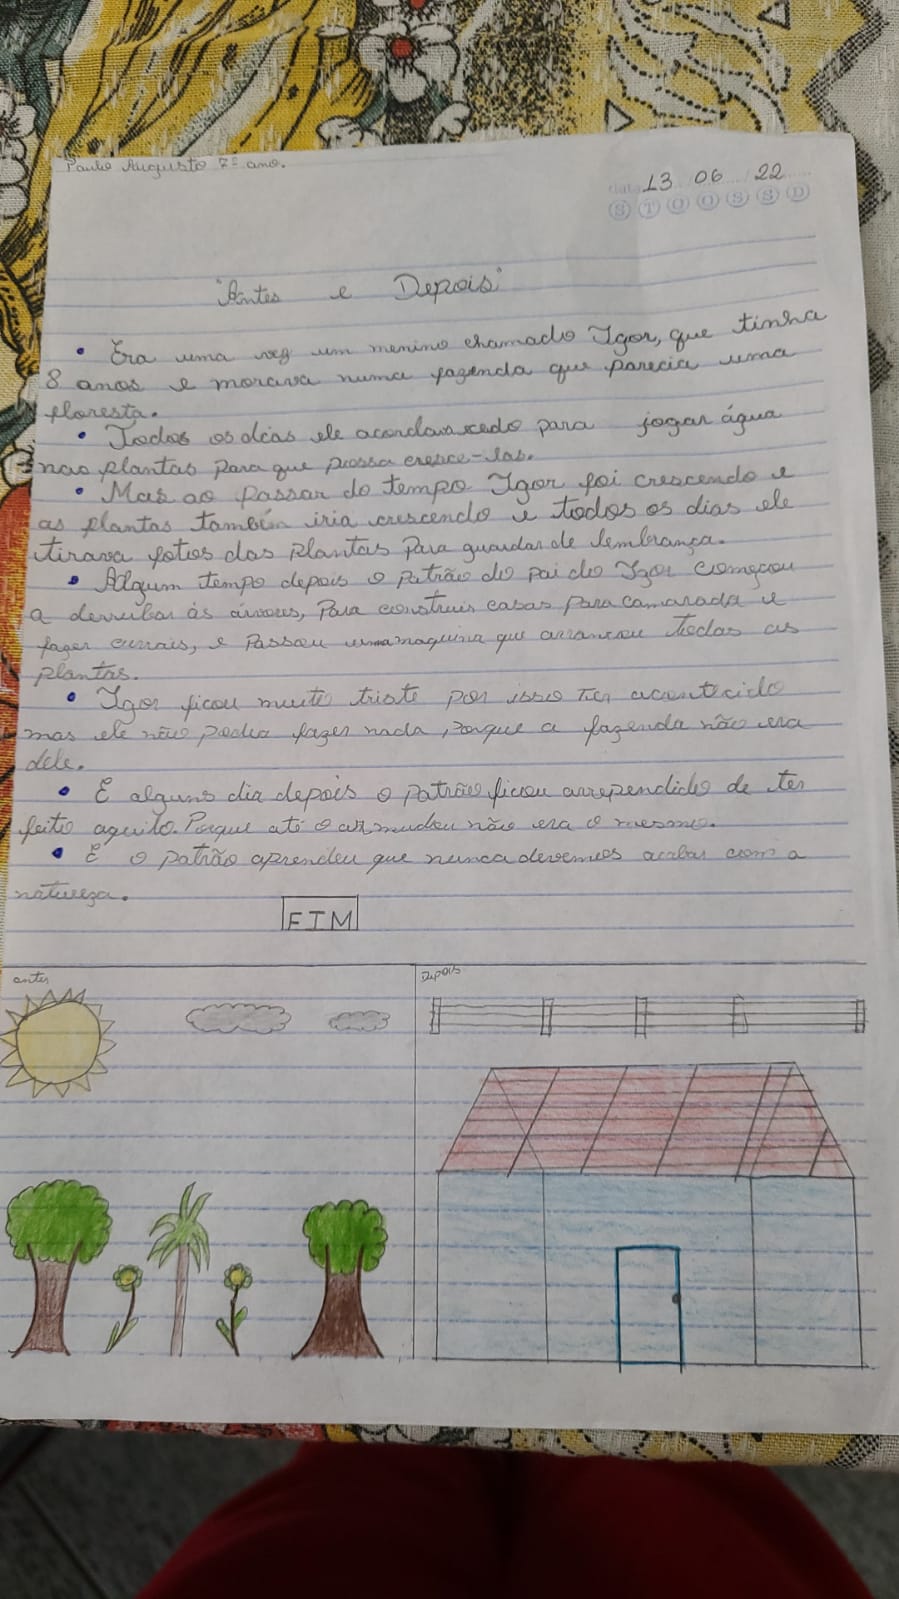 Paulo Augusto 7º ano.
data 13 06 22
S T Q Q S S D
"Antes e Depois"
• Era uma vez um menino chamado Igor, que tinha
8 anos e morava numa fazenda que parecia uma
floresta.
• Todos os dias ele acordava cedo para jogar água
nas plantas para que possa cresce-las.
• Mas ao passar do tempo Igor foi crescendo e
as plantas também iria crescendo e todos os dias ele
tirava fotos das plantas Para guardar de lembrança.
• Algum tempo depois o patrão do pai do Igor começou
a derrubar às árvores, Para construir casas para camarada e
fazer currais, e Passou uma maquina que arrancou todas as
plantas.
• Igor ficou muito triste por isso ter acontecido
mas ele não podia fazer nada, porque a fazenda não era
dele.
• E alguns dia depois o patrão ficou arrependido de ter
feito aquilo. Porque até o ar mudou não era o mesmo.
• E o patrão aprendeu que nunca devemos acabar com a
natureza.
FIM
antes
Depois